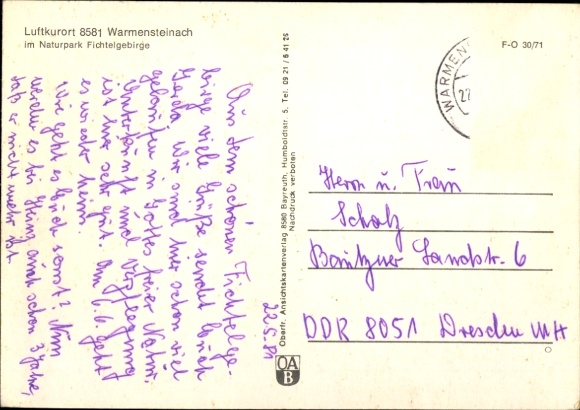 Luftkurort 8581 Warmensteinach
im Naturpark Fichtelgebirge
F-O 30/71
WARMEN
22.
22.5.81
Aus dem schönen Fichtelge-
birge viele Grüße sendet Euch
Gerda. Wir sind hier schon viel
gelaufen in Gottes freier Natur.
Unterkunft und Verpflegung
ist hier sehr gut. Am 6.6. geht
es wieder heim.
Wie geht es Euch sonst? Nun
werden es bei Heinz auch schon 3 Jahre,
daß er nicht mehr ist
Oberfr. Ansichtskartenverlag 8580 Bayreuth, Humboldtstr. 5, Tel. 09 21 / 6 41 26
Nachdruck verboten
OA
B
Herrn u. Frau
Scholz
Bautzner Landstr. 6
DDR 8051 Dresden WH